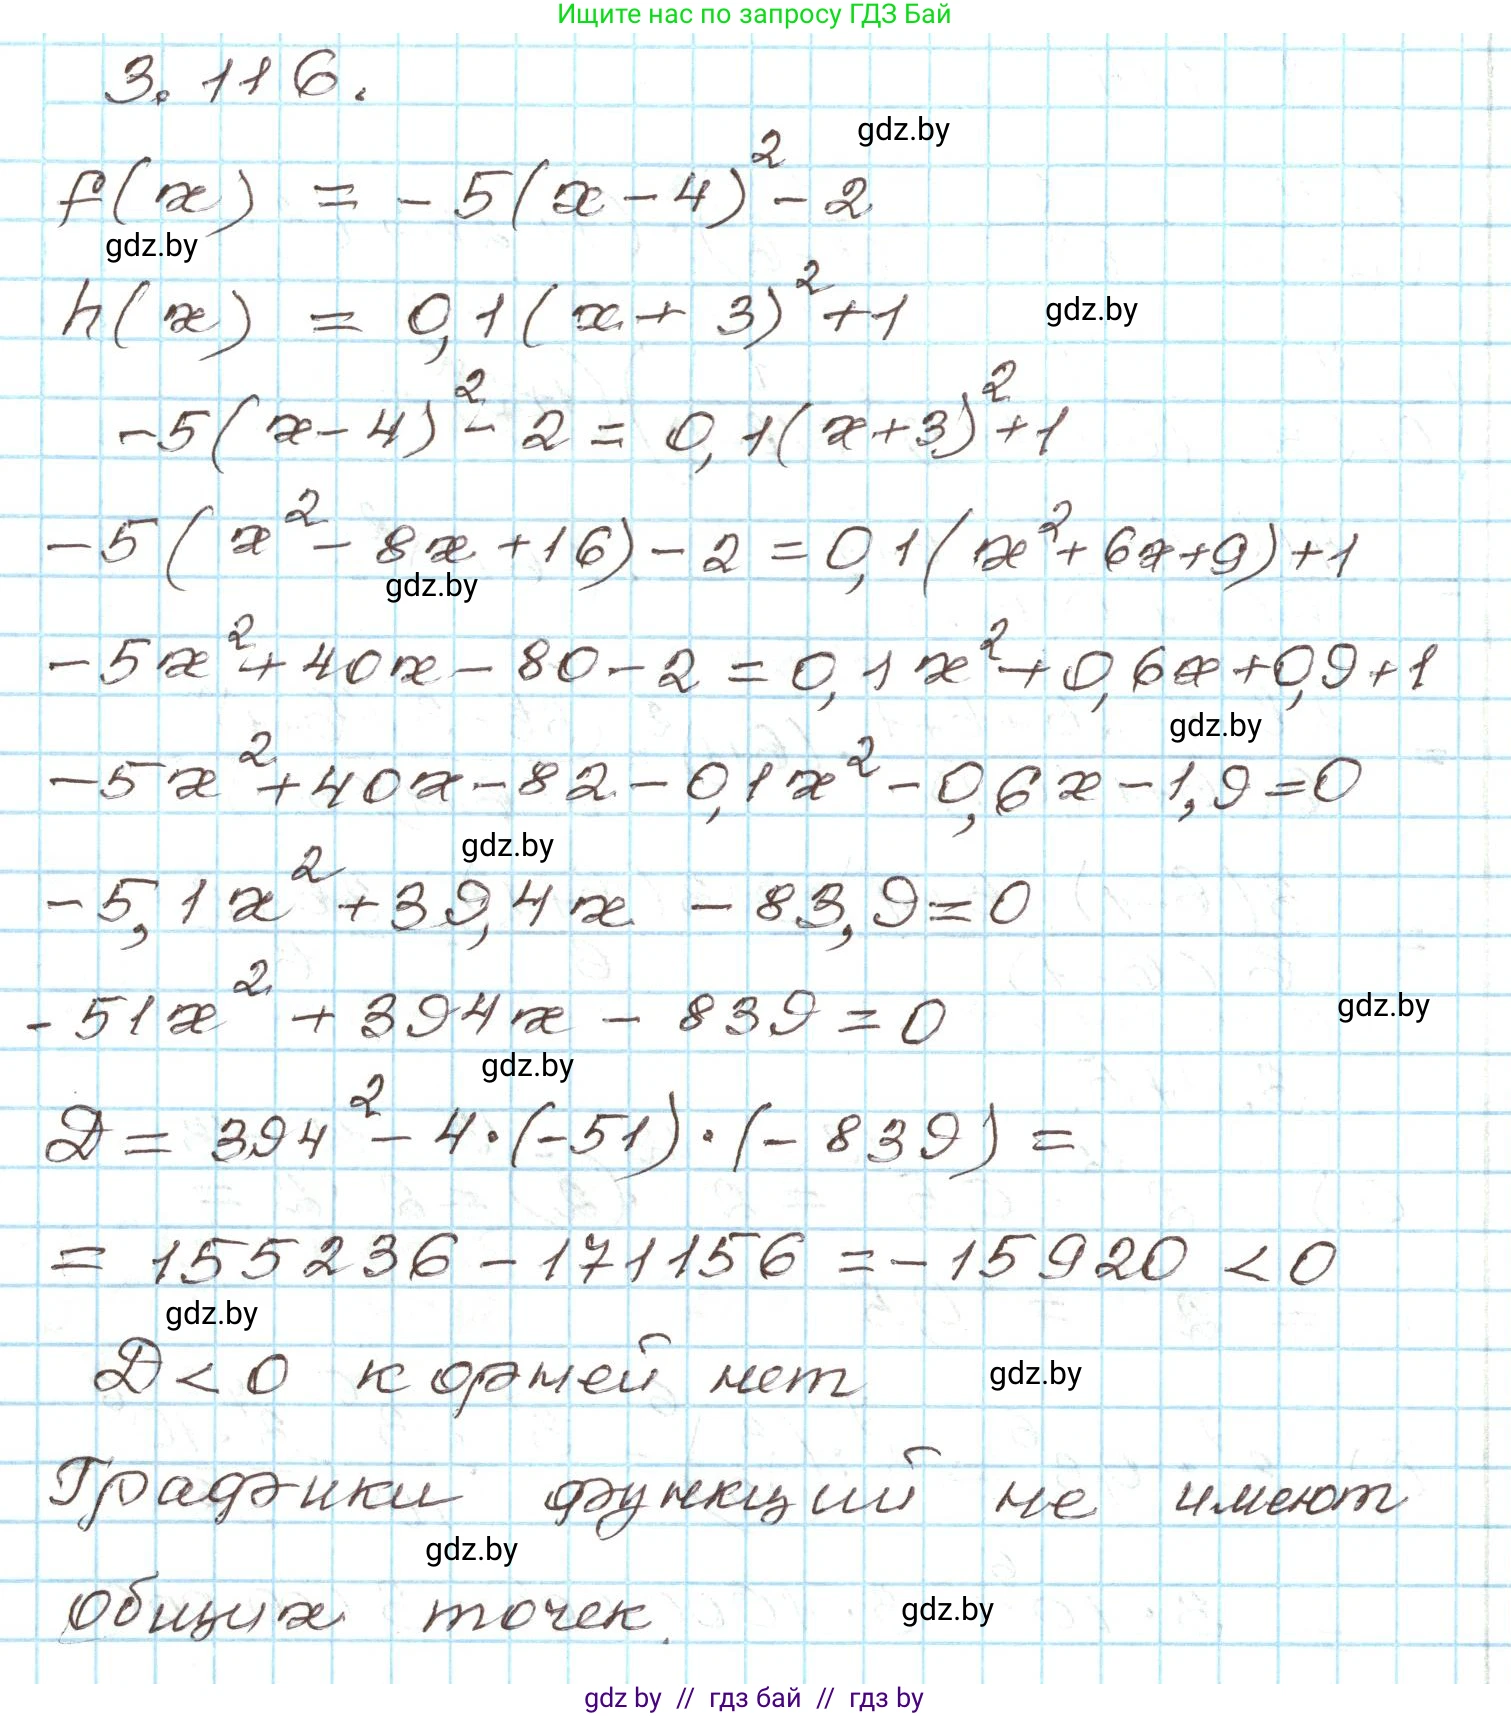 Ищите нас по запросу ГДЗ Бай
3.116.
gdz.by
f(x) = -5(x-4)² - 2
gdz.by
h(x) = 0,1(x+3)² + 1
gdz.by
-5(x-4)² - 2 = 0,1(x+3)² + 1
-5(x² - 8x + 16) - 2 = 0,1(x² + 6x + 9) + 1
gdz.by
-5x² + 40x - 80 - 2 = 0,1x² + 0,6x + 0,9 + 1
gdz.by
-5x² + 40x - 82 - 0,1x² - 0,6x - 1,9 = 0
gdz.by
-5,1x² + 39,4x - 83,9 = 0
-51x² + 394x - 839 = 0
gdz.by
gdz.by
D = 394² - 4·(-51)·(-839) =
= 155236 - 171156 = -15920 < 0
gdz.by
D < 0 корней нет
gdz.by
Графики функций не имеют
gdz.by
общих точек.
gdz.by
gdz by // гдз бай // гдз by